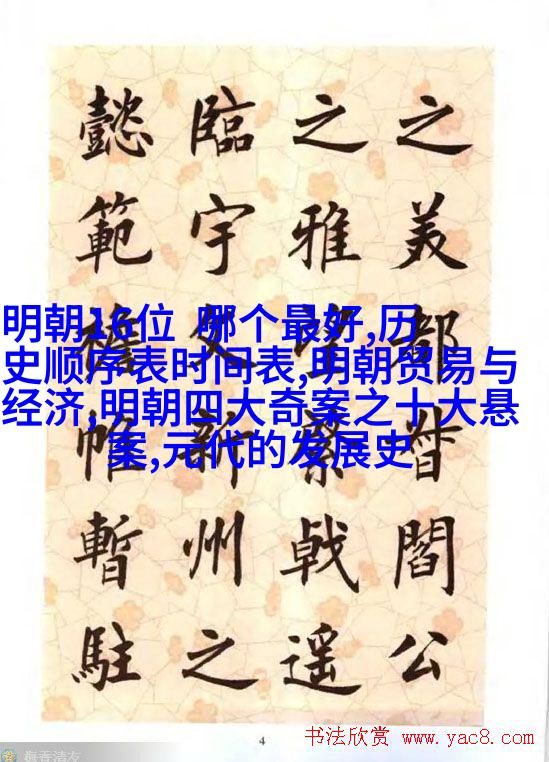 之美都督閻公
之雅望棨戟遥
臨宇文新州之
懿範襜帷暫駐
明朝16位 哪个最好,历
史顺序表时间表,明朝贸易与
经济,明朝四大奇案之十大悬
案,元代的发展史
4
书法欣赏 www.yac8.com
梅香清友